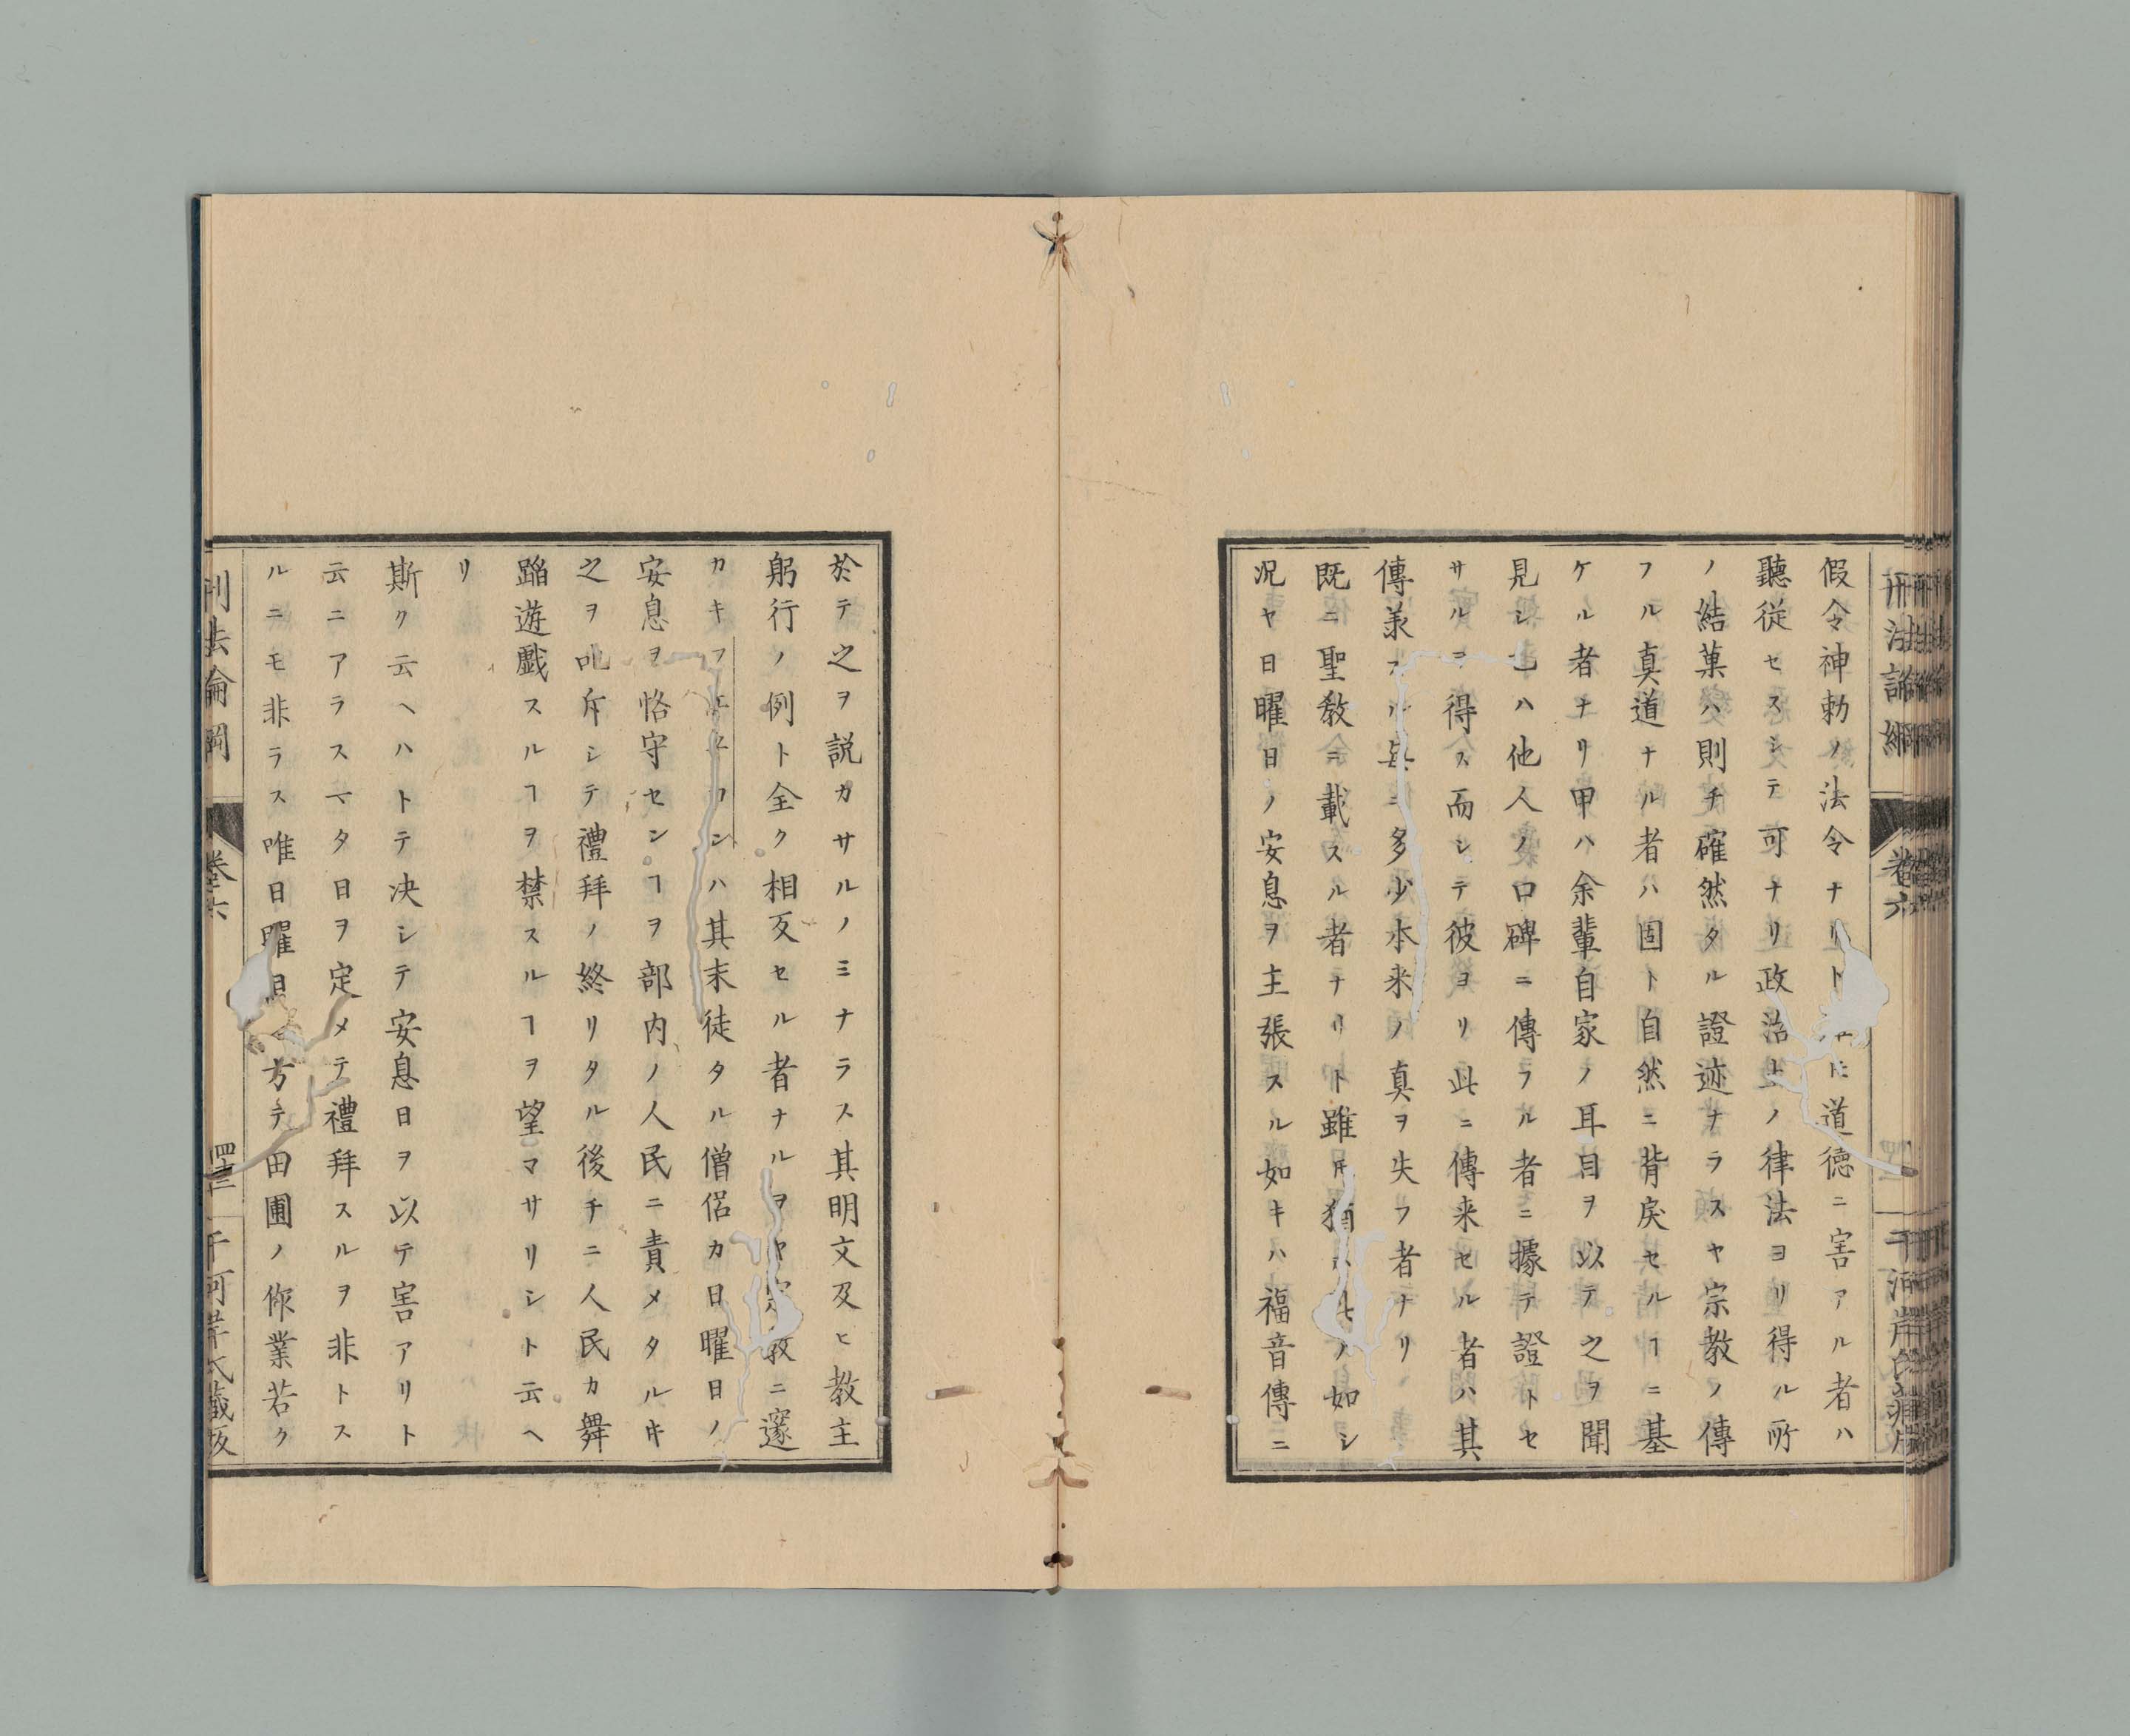 假令神勅ノ法令ナリト𪜈道徳ニ害アル者ハ
聽従セスシテ可ナリ政治上ノ律法ヨリ得ル所
ノ結菓ハ則チ確然タル證迹ナラスヤ宗教ノ傳
フル真道ナル者ハ固ト自然ニ背戻セルヿニ基
ケル者ナリ甲ハ余輩自家ノ耳目ヲ以テ之ヲ聞
見シ乙ハ他人ノ口碑ニ傳フル者ニ據テ證トセ
サルヲ得ス而シテ彼ヨリ此ニ傳来セル者ハ其
傳義スル毎ニ多少本来ノ真ヲ失フ者ナリ
既ニ聖教ニ載スル者ナリト雖𪜈猶ホ此ノ如シ
况ヤ日曜日ノ安息ヲ主張スル如キハ福音傳ニ
刑法論綱
卷六
於テ之ヲ説カサルノミナラス其明文及ヒ教主
躬行ノ例ト全ク相反セル者ナルヲヤ宗教ニ邃
カキハ其末徒タル僧侶カ日曜日ノ
安息ヲ恪守センヿヲ部内ノ人民ニ責メタルキ
之ヲ叱斥シテ禮拜ノ終リタル後チニ人民カ舞
蹈遊戯スルヿヲ禁スルヿヲ望マサリシト云ヘ
リ
斯ク云ヘハトテ决シテ安息日ヲ以テ害アリト
云ニアラス亦タ日ヲ定メテ禮拜スルヲ非トス
ルニモ非ラス唯日曜日ニ方テ田圃ノ作業若ク
刑法論綱
卷六
四十二
干河岸氏藏版